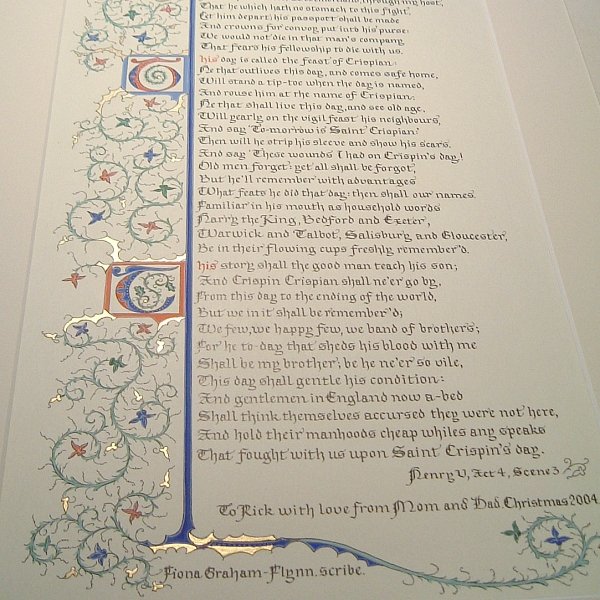 through my host,
That he which hath no stomach to this fight,
Let him depart; his passport shall be made
And crowns for convoy put into his purse:
We would not die in that man's company
That fears his fellowship to die with us.
This day is called the feast of Crispian:
He that outlives this day, and comes safe home,
Will stand a tip-toe when the day is named,
And rouse him at the name of Crispian.
He that shall live this day, and see old age,
Will yearly on the vigil feast his neighbours,
And say 'To-morrow is Saint Crispian:'
Then will he strip his sleeve and show his scars.
And say 'These wounds I had on Crispin's day.'
Old men forget: yet all shall be forgot,
But he'll remember with advantages
What feats he did that day: then shall our names.
Familiar in his mouth as household words
Harry the King, Bedford and Exeter,
Warwick and Talbot, Salisbury and Gloucester,
Be in their flowing cups freshly remember'd.
This story shall the good man teach his son;
And Crispin Crispian shall ne'er go by,
From this day to the ending of the world,
But we in it shall be remember'd;
We few, we happy few, we band of brothers;
For he to-day that sheds his blood with me
Shall be my brother; be he ne'er so vile,
This day shall gentle his condition:
And gentlemen in England now a-bed
Shall think themselves accursed they were not here,
And hold their manhoods cheap whiles any speaks
That fought with us upon Saint Crispin's day.
Henry V, Act 4, Scene 3
To Rick with love from Mom and Dad. Christmas 2004
Fiona Graham-Flynn. scribe.